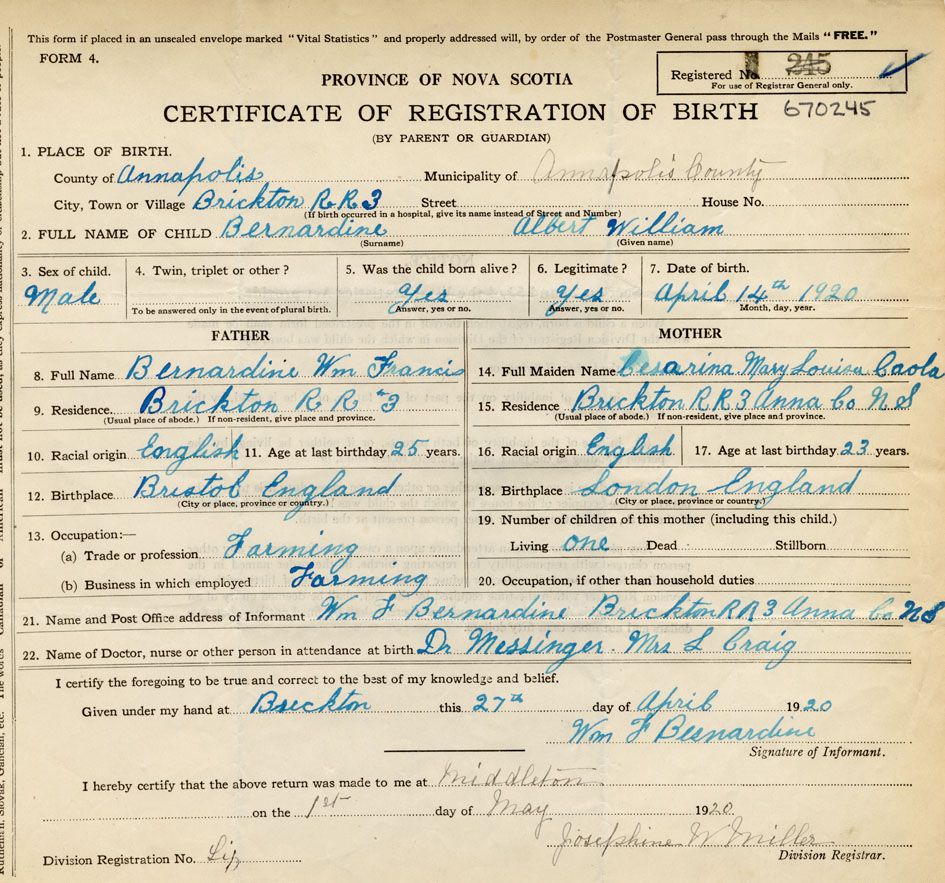 This form if placed in an unsealed envelope marked "Vital Statistics" and properly addressed will, by order of the Postmaster General pass through the Mails "FREE."
FORM 4.
Registered No. 245
For use of Registrar General only.
PROVINCE OF NOVA SCOTIA
CERTIFICATE OF REGISTRATION OF BIRTH 670245
(BY PARENT OR GUARDIAN)
1. PLACE OF BIRTH.
County of Annapolis Municipality of Annapolis County
City, Town or Village Brickton R R 3 Street House No.
(If birth occurred in a hospital, give its name instead of Street and Number)
2. FULL NAME OF CHILD Bernardine Albert William
(Surname) (Given name)
3. Sex of child. 4. Twin, triplet or other? 5. Was the child born alive? 6. Legitimate? 7. Date of birth.
Male Yes Yes April 14th 1920
To be answered only in the event of plural birth. Answer, yes or no. Answer, yes or no. Month, day, year.
FATHER MOTHER
8. Full Name Bernardine Wm Francis 14. Full Maiden Name Cesarina Mary Louisa Caola
9. Residence. Brickton R R #3 15. Residence Brickton R R 3 Anna Co N S
(Usual place of abode.) If non-resident, give place and province. (Usual place of abode.) If non-resident, give place and province.
10. Racial origin English 11. Age at last birthday 25 years. 16. Racial origin English 17. Age at last birthday 23 years.
12. Birthplace Bristol England 18. Birthplace London England
(City or place, province or country.) (City or place, province or country.)
19. Number of children of this mother (including this child.)
13. Occupation:—
(a) Trade or profession Farming Living one Dead Stillborn
(b) Business in which employed Farming 20. Occupation, if other than household duties
21. Name and Post Office address of Informant Wm F Bernardine Brickton R R 3 Anna Co N S
22. Name of Doctor, nurse or other person in attendance at birth Dr Messinger. Mrs L Craig
I certify the foregoing to be true and correct to the best of my knowledge and belief.
Given under my hand at Brickton this 27th day of April 1920
Wm F Bernardine
Signature of Informant.
I hereby certify that the above return was made to me at Middleton
on the 1st day of May 1920
Josephine W Miller
Division Registrar.
Division Registration No.